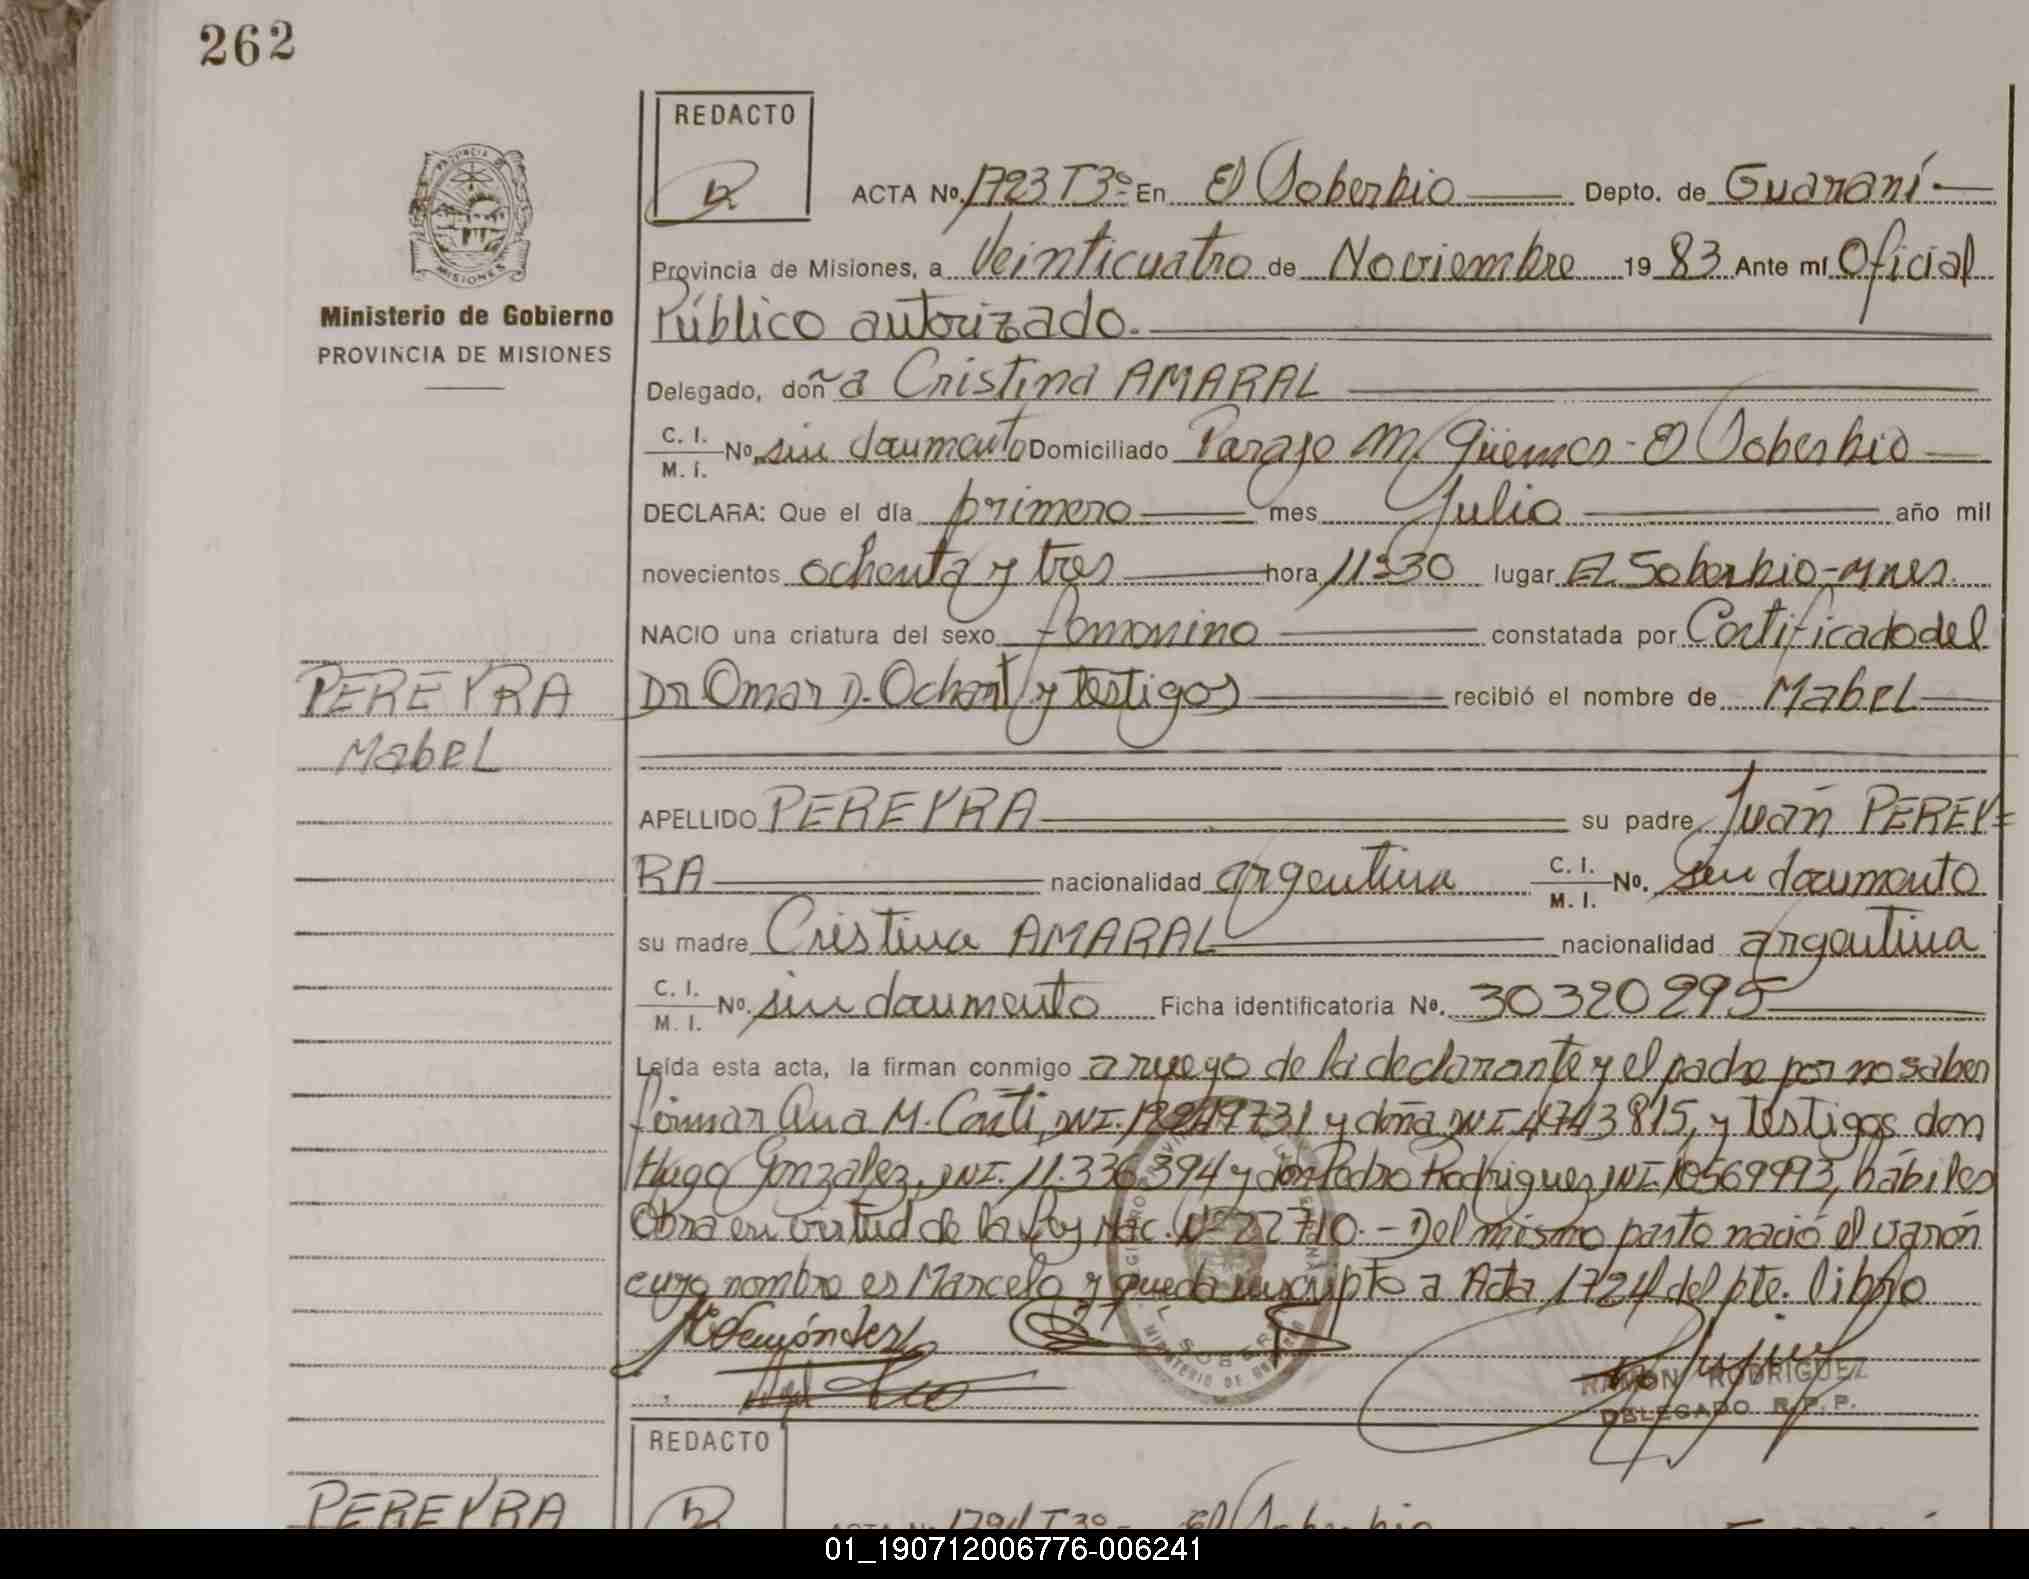 262
REDACTO
PROVINCIA DE
MISIONES
Ministerio de Gobierno
PROVINCIA DE MISIONES
ACTA No. 1723 T3º En El Soberbio Depto. de Guaraní
Provincia de Misiones, a Veinticuatro de Noviembre 19 83 Ante mí Oficial
Público autorizado.
Delegado, doña Cristina AMARAL
C. I. / M. I. No. sin documento Domiciliado Paraje M. Güemes - El Soberbio
DECLARA: Que el día primero mes Julio año mil
novecientos ochenta y tres hora 11:30 lugar El Soberbio-Mnes.
NACIO una criatura del sexo femenino constatada por Certificado del
PEREYRA
Mabel
Dr Omar D. y testigos recibió el nombre de Mabel
APELLIDO PEREYRA su padre Juan PEREY=
RA nacionalidad argentina C. I. / M. I. No. sin documento
su madre Cristina AMARAL nacionalidad argentina
C. I. / M. I. No. sin documento Ficha identificatoria No. 30320295
Leída esta acta, la firman conmigo a ruego de la declarante y el padre por no saber
firmar Ana M. Conti, DNI. y doña DNI 4743815, y testigos don
Hugo Gonzalez, DNI. 11.336394 y don Pedro Rodriguez DNI. 10569993, hábiles
Obra en virtud de la Ley Nac. Nº 22710.- Del mismo parto nació el varón
cuyo nombre es Marcelo y queda inscripto a Acta 1724 del pte. libro
RAMON RODRIGUEZ
DELEGADO R.P.P.
REDACTO
PEREYRA
ACTA No. 1724 T3º El Soberbio
01_190712006776-006241